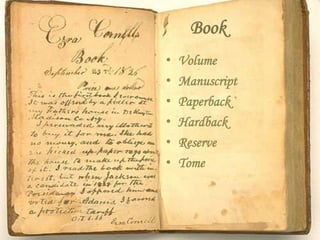 Ezra Cornell's
Book.
September 23rd 1826
Price one dollar
This is the first book I ever owned
It was offered by a pedler at
my Father's house in DeRuyter
Madison Co. N.Y.
I persuaded my mother
to buy it for me. She had
no money, and to oblige me
she picked up paper rags about
the house to make up the price
of it. I read the book with in-
terest, but when Jackson was
a candidate in 1828 for the
Presidency I opposed him and
voted for Adams I favored
a protective tariff.
Ezra Cornell
Book
• Volume
• Manuscript
• Paperback
• Hardback
• Reserve
• Tome